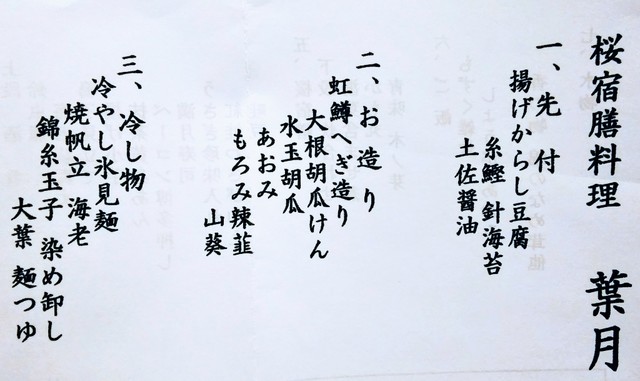 桜宿膳料理 葉月
一、先付
揚げからし豆腐
糸鰹 針海苔
土佐醤油
二、お造り
虹鱒へぎ造り
大根胡瓜けん
水玉胡瓜
あおみ
もろみ辣韮
山葵
三、冷し物
冷やし氷見麺
焼帆立 海老
錦糸玉子 染め卸し
大葉 麺つゆ